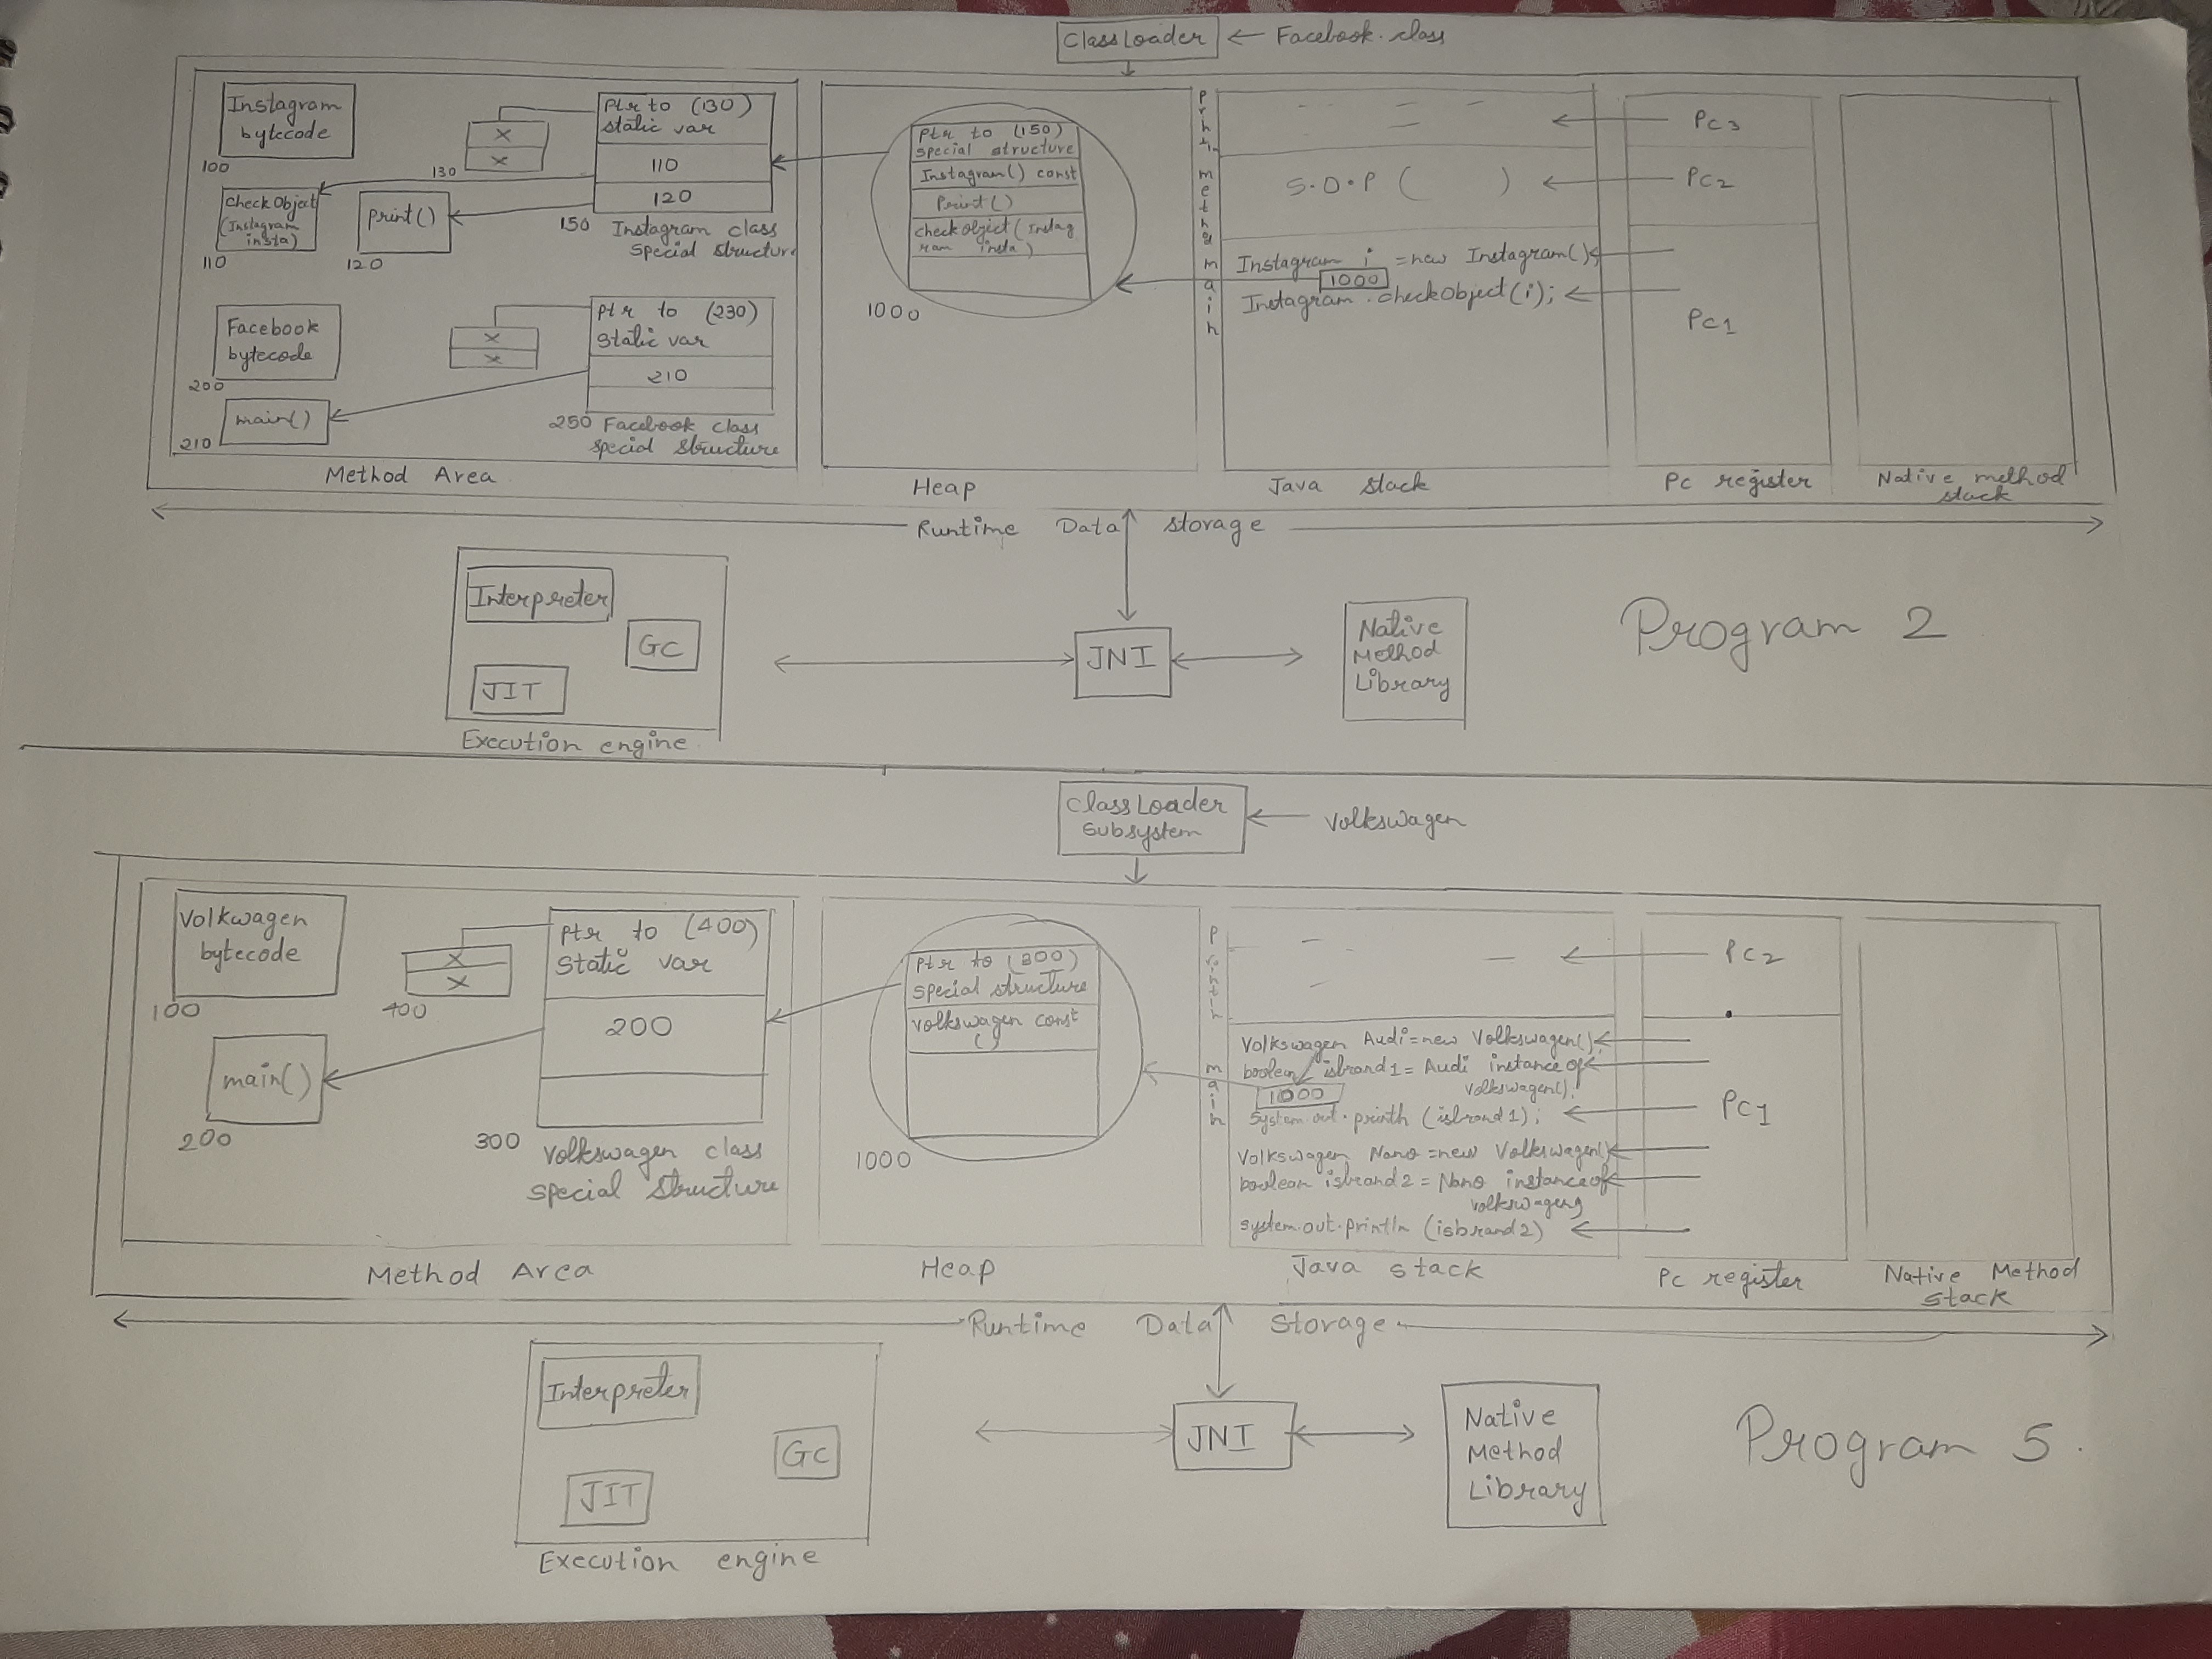 ClassLoader ← Facebook.class
Instagram
bytecode
100
X
X
130
Ptr to (130)
static var
110
120
150 Instagram class
special structure
checkObject
(Instagram
insta)
110
print()
120
Facebook
bytecode
200
X
X
Ptr to (230)
Static var
210
250 Facebook class
special structure
main()
210
Method Area
Ptr to (150)
special structure
Instagram() const
Print()
checkobject(Instag
ram insta)
1000
Heap
method
main
S.O.P ( )
Instagram i =new Instagram();
1000
Instagram.checkObject(i);
Java stack
PC3
PC2
PC1
PC register
Native method
stack
Runtime Data storage
Interpreter
GC
JIT
Execution engine
JNI
Native
Method
Library
Program 2
ClassLoader
subsystem
← Volkswagen
Volkwagen
bytecode
100
X
X
400
Ptr to (400)
Static var
200
300 Volkswagen class
special structure
main()
200
Method Area
Ptr to (300)
special structure
Volkswagen const
()
1000
Heap
main
Volkswagen Audi=new Volkswagen();
boolean isbrand1= Audi instance of
Volkswagen();
1000
System.out.println (isbrand1);
Volkswagen Nano =new Volkswagen()
boolean isbrand2 = Nano instanceof
Volkswagen
system.out.println (isbrand2)
Java stack
PC2
PC1
PC register
Native Method
stack
Runtime Data Storage
Interpreter
GC
JIT
Execution engine
JNI
Native
Method
Library
Program 5.